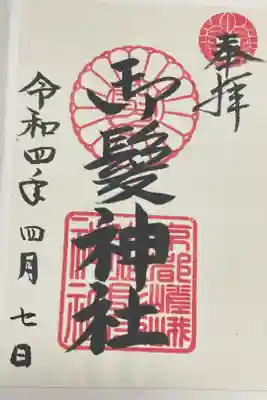 奉拝
御髪神社
令和四年四月七日